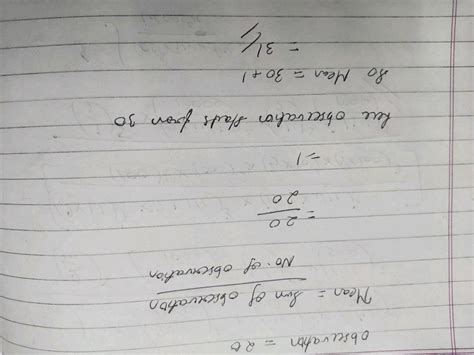 observation = 20
Mean = Sum of observation
No. of observation
= 20
20
= 1
here observation starts from 30
So Mean = 30+1
= 31//